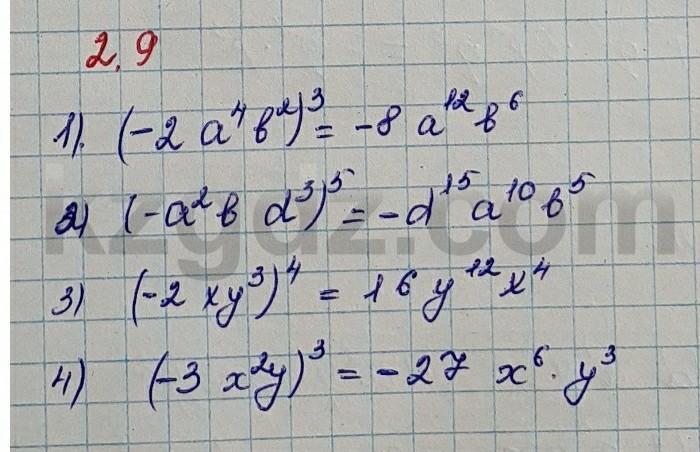 2.9
1). (-2 a⁴b²)³ = -8 a¹²b⁶
2) (-a²b d³)⁵ = -d¹⁵a¹⁰b⁵
3) (-2 xy³)⁴ = 16 y¹²x⁴
4) (-3 x²y)³ = -27 x⁶ · y³
kzgdz.com